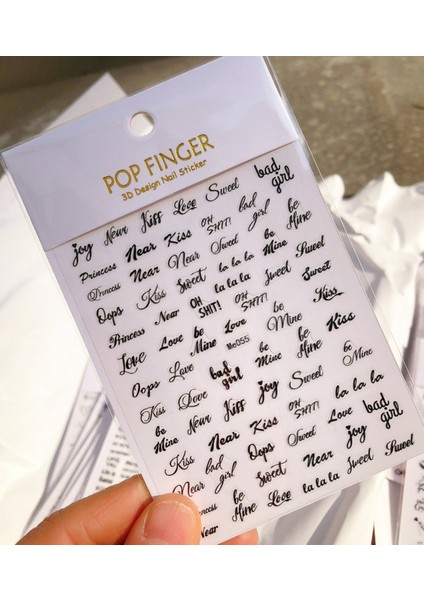 POP FINGER
3D Design Nail Sticker
joy Near Kiss Love Sweet bad girl
Princess Near Kiss OH SHIT! bad girl be Mine
Princess Near Near Sweet be Mine Sweet
Oops Kiss Sweet la la la la la la Sweet Sweet
Princess Near OH SHIT! OH SHIT! be Mine Kiss
Love Love be Mine Love Me055 be Mine Kiss
Oops Love bad girl be Mine be Mine be Mine
Kiss Love Kiss joy Sweet la la la
be Mine Near Kiss OH SHIT! Love bad girl
Kiss Near Kiss Oops Sweet joy
Near bad girl Sweet Near Sweet Sweet
Princess be Mine Love la la la
Near